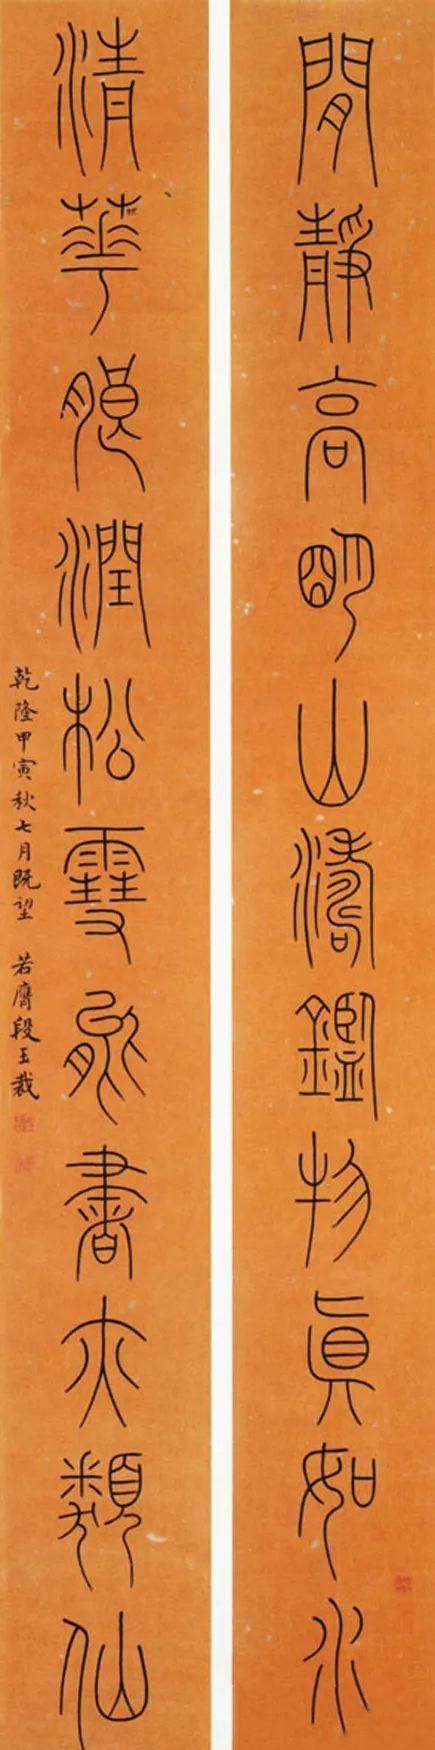 閒靜高朙山濤鑑物眞如水
清華朖潤松雪書亦類仙
乾隆甲寅秋七月既望 若膺段玉裁